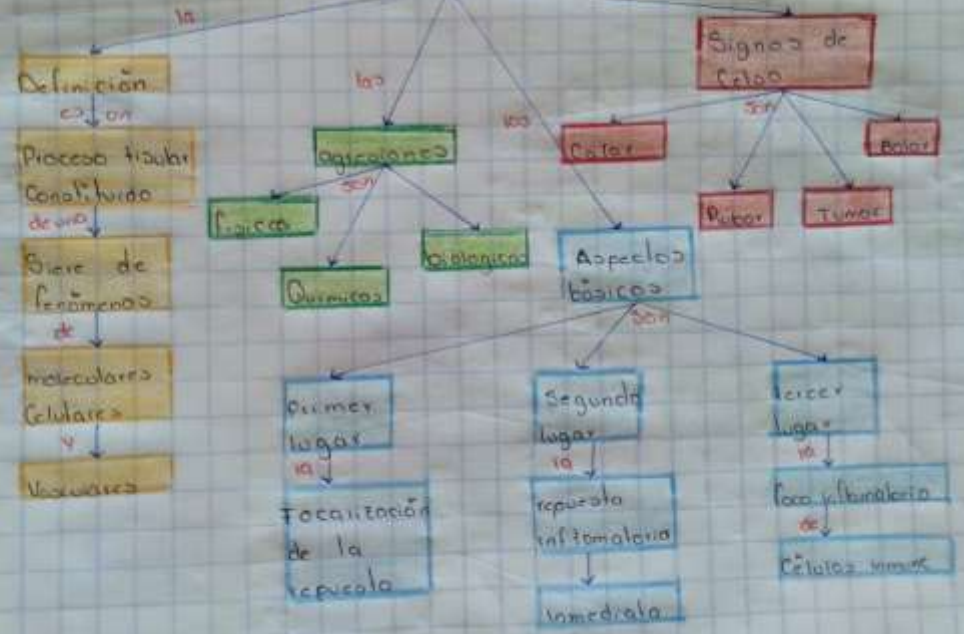 la
Definición
es un
Proceso tisular
Constituido
de una
Siere de
fenómenos
de
moleculares
Celulares
y
Vasculares
las
agreciones
son
fisicos
Quimicos
biologicos
los
Aspectos
básicos
son
Primer
lugar
la
Focalización
de la
repuesta
Segundo
lugar
la
repuesta
inflamatoria
Inmediata
tercer
lugar
la
foco inflamatorio
de
Células inmune
Signos de
Celso
son
Calor
Rubor
Tumor
Dolor